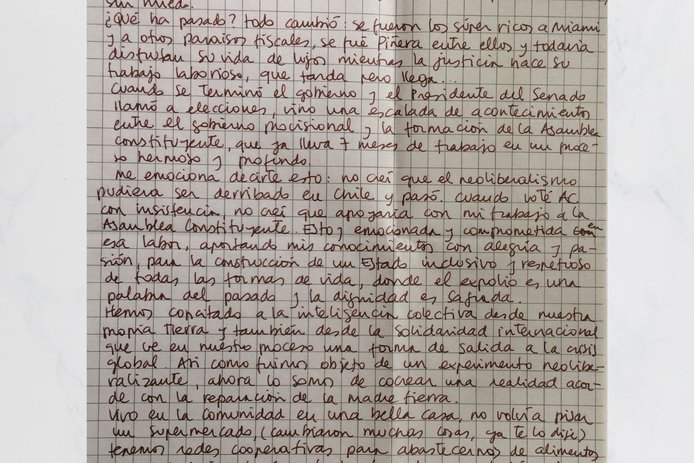 sin miedo.
¿Qué ha pasado? todo cambió: se fueron los súper ricos a Miami
y a otros paraísos fiscales, se fue Piñera entre ellos y todavía
disfrutan su vida de lujos mientras la justicia hace su
trabajo laborioso, que tarda pero llega...
Cuando se terminó el gobierno y el Presidente del Senado
llamó a elecciones, vino una escalada de acontecimientos
entre el gobierno provisional y la formación de la Asamblea
Constituyente, que ya lleva 7 meses de trabajo en un proce-
so hermoso y profundo.
Me emociona decirte esto: no creí que el neoliberalismo
pudiera ser derribado en Chile y pasó. Cuando voté AC
con insistencia, no creí que apoyaría con mi trabajo a la
Asamblea Constituyente. Estoy emocionada y comprometida en
esa labor, aportando mis conocimientos con alegría y pa-
sión, para la construcción de un Estado inclusivo y respetuoso
de todas las formas de vida, donde el expolio es una
palabra del pasado y la dignidad es sagrada.
Hemos concitado a la inteligencia colectiva desde nuestra
propia tierra y también desde la solidaridad internacional
que ve en nuestro proceso una forma de salida a la crisis
global. Así como fuimos objeto de un experimento neolibe-
ralizante, ahora lo somos de cocrear una realidad acor-
de con la reparación de la Madre tierra.
Vivo en la comunidad en una bella casa, no volví a pisar
un supermercado, (cambiaron muchas cosas, ya te lo dije)
tenemos redes cooperativas para abastecernos de alimentos